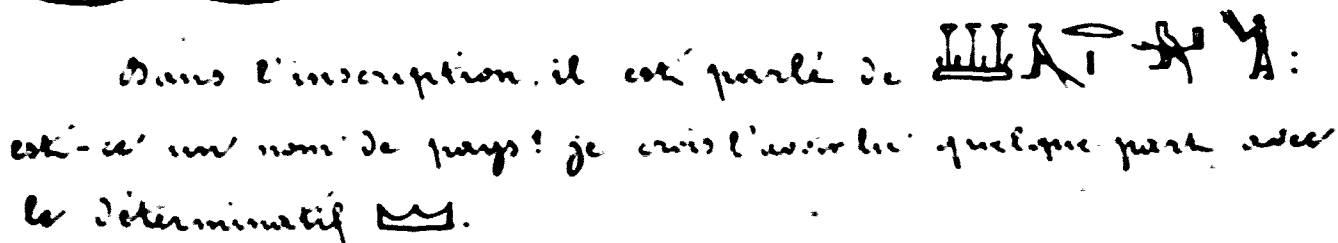 Dans l'inscription, il est parlé de 𓆷𓄿𓂋𓏤𓅓𓀜 :
est-ce un nom de pays? je crois l'avoir lu quelque part avec
le déterminatif 𓈉.